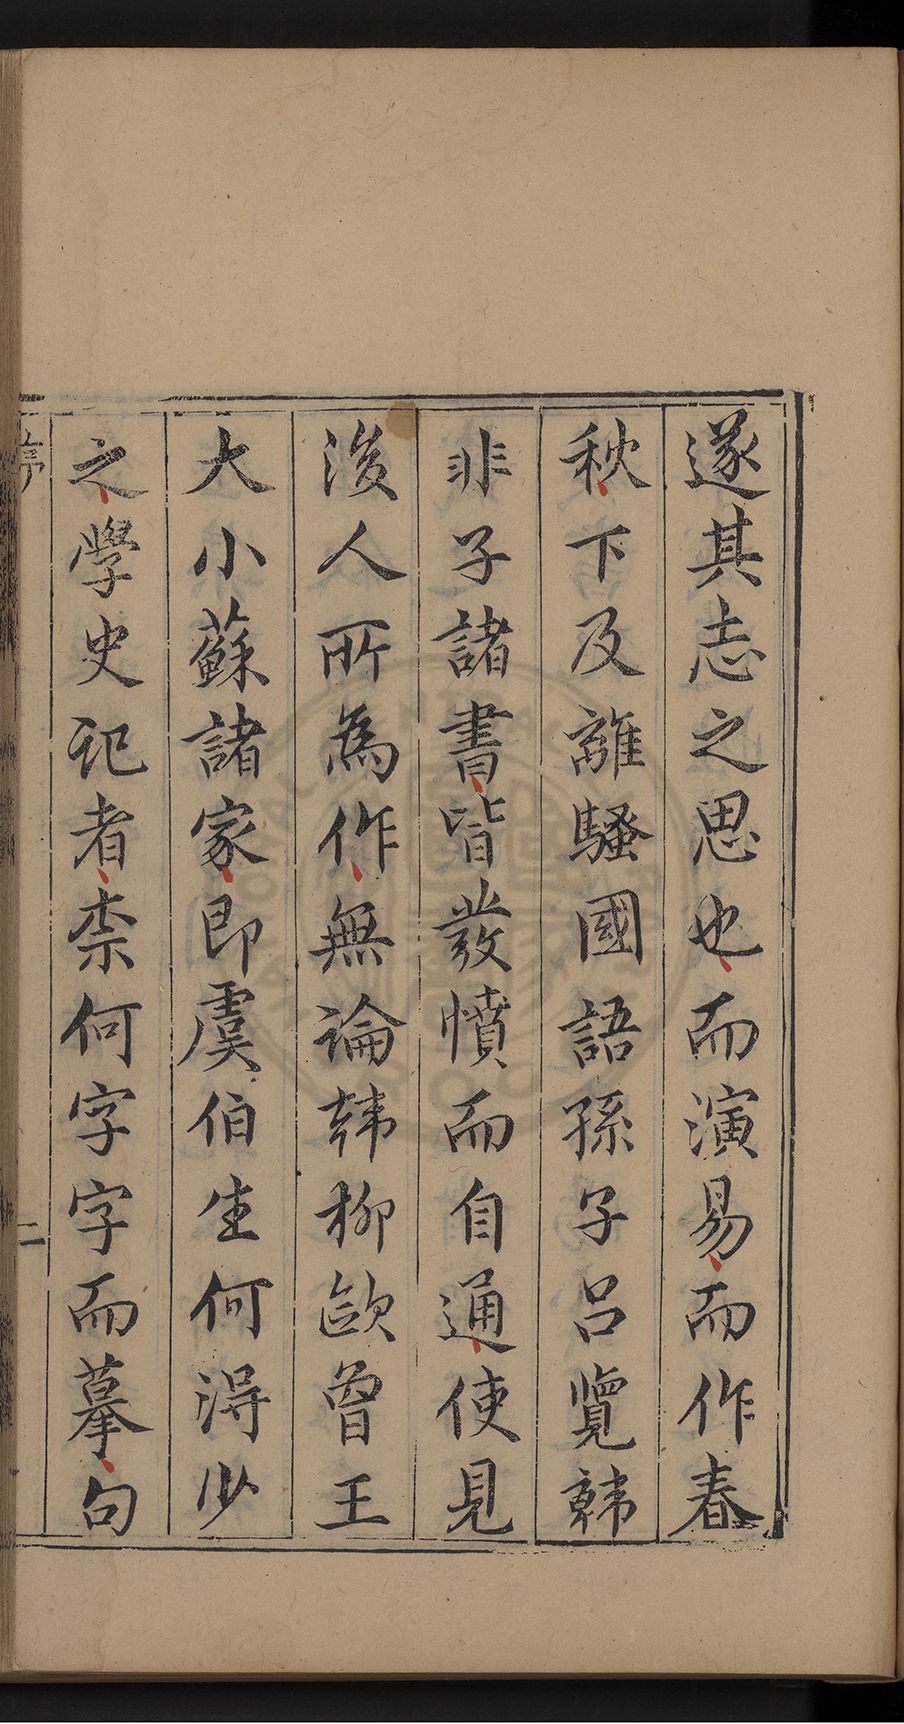 遂其志之思也而演易而作春
秋下及離騷國語孫子呂覽韓
非子諸書皆發憤而自通使見
後人所為作無論韓柳歐曾王
大小蘇諸家即虞伯生何得少
之學史记者柰何字字而摹句
序
二